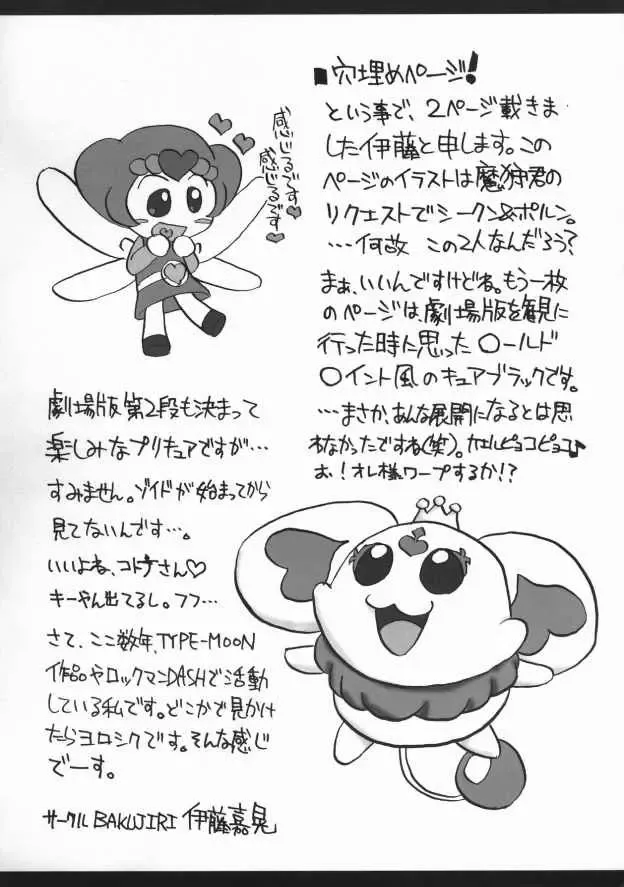 ■穴埋めページ!
という事で、2ページ載きま
した伊藤と申します。この
ページのイラストは魔狩君の
リクエストでシークン&ポルン。
…何故 この2人なんだろう?
まぁ、いいんですけどね。もう一枚
のページは、劇場版を観に
行った時に思った〇ールド
〇イント風のキュアブラックです。
…まさか、あんな展開になるとは思
わなかったですね(笑)。カエルピョコピョコ♪
お!オレ様、ワープするか!?
感じるですぅ♥
感じるですぅ♥
劇場版第2段も決まって
楽しみなプリキュアですが…
すみません。ゾイドが始まってから
見てないんです…。
いいよね、コトナさん♡
キーやん出てるし。フフ…
さて、ここ数年、TYPE-MOON
作品やロックマンDASHで活動
している私です。どこかで見かけ
たらヨロシクです。そんな感じ
でーす。
サークル BAKUJIRI 伊藤嘉晃